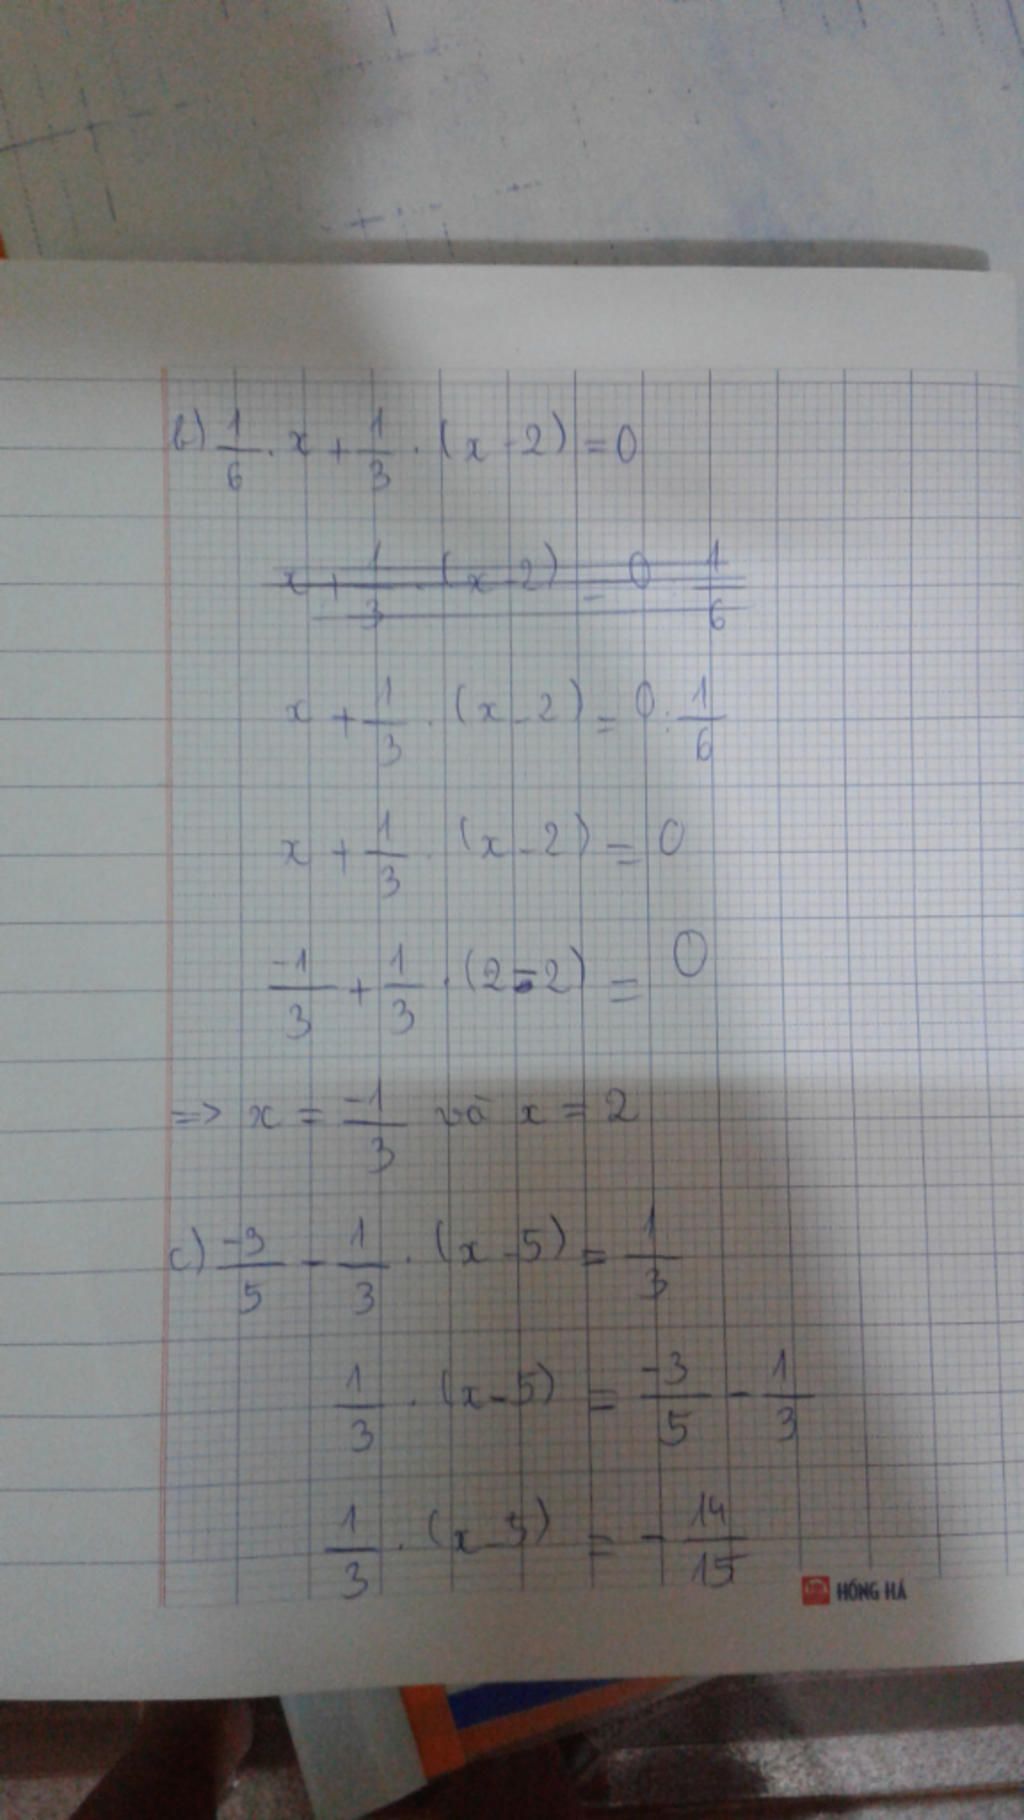 b) 1/6 . x + 1/3 . (x - 2) = 0
x + 1/3 . (x - 2) = 0 1/6
x + 1/3 . (x - 2) = 0 : 1/6
x + 1/3 . (x - 2) = 0
-1/3 + 1/3 . (2 - 2) = 0
=> x = -1/3 và x = 2
c) -3/5 - 1/3 . (x - 5) = 1/3
1/3 . (x - 5) = -3/5 - 1/3
1/3 . (x - 5) = - 14/15
HỒNG HÀ